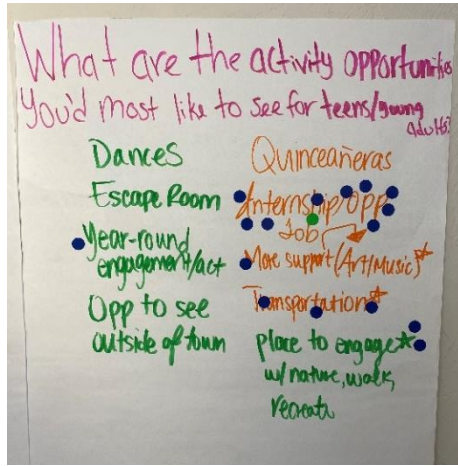 What are the activity opportunities
You'd most like to see for teens/young
adults?
Dances
Escape Room
Year-round
engagement/act
Opp to see
outside of town
Quinceañeras
Internship Opp
Job
More support (Art/Music)*
Transportation*
place to engage*
w/ nature, walk,
recreate